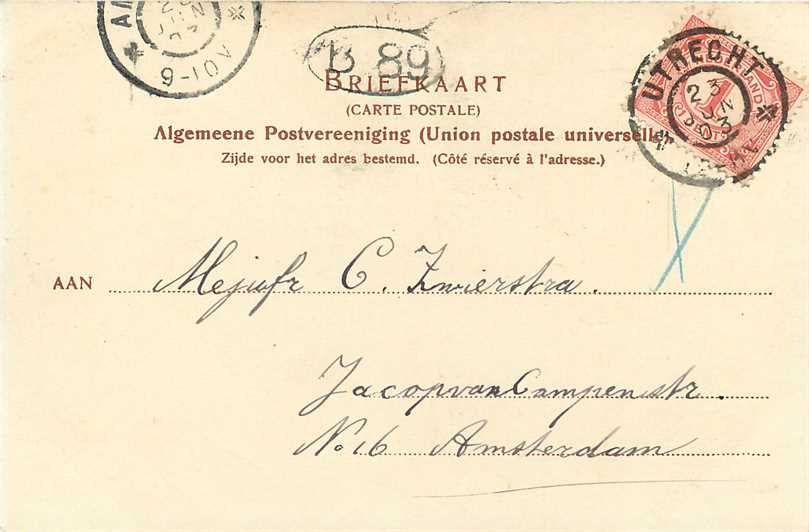 6-10V
B 89
UTRECHT
BRIEFKAART
(CARTE POSTALE)
Algemeene Postvereeniging (Union postale universelle
Zijde voor het adres bestemd. (Côté réservé à l'adresse.)
AAN Mejufr C. Zwierstra.
Jacop van Campenstr.
No 16 Amsterdam